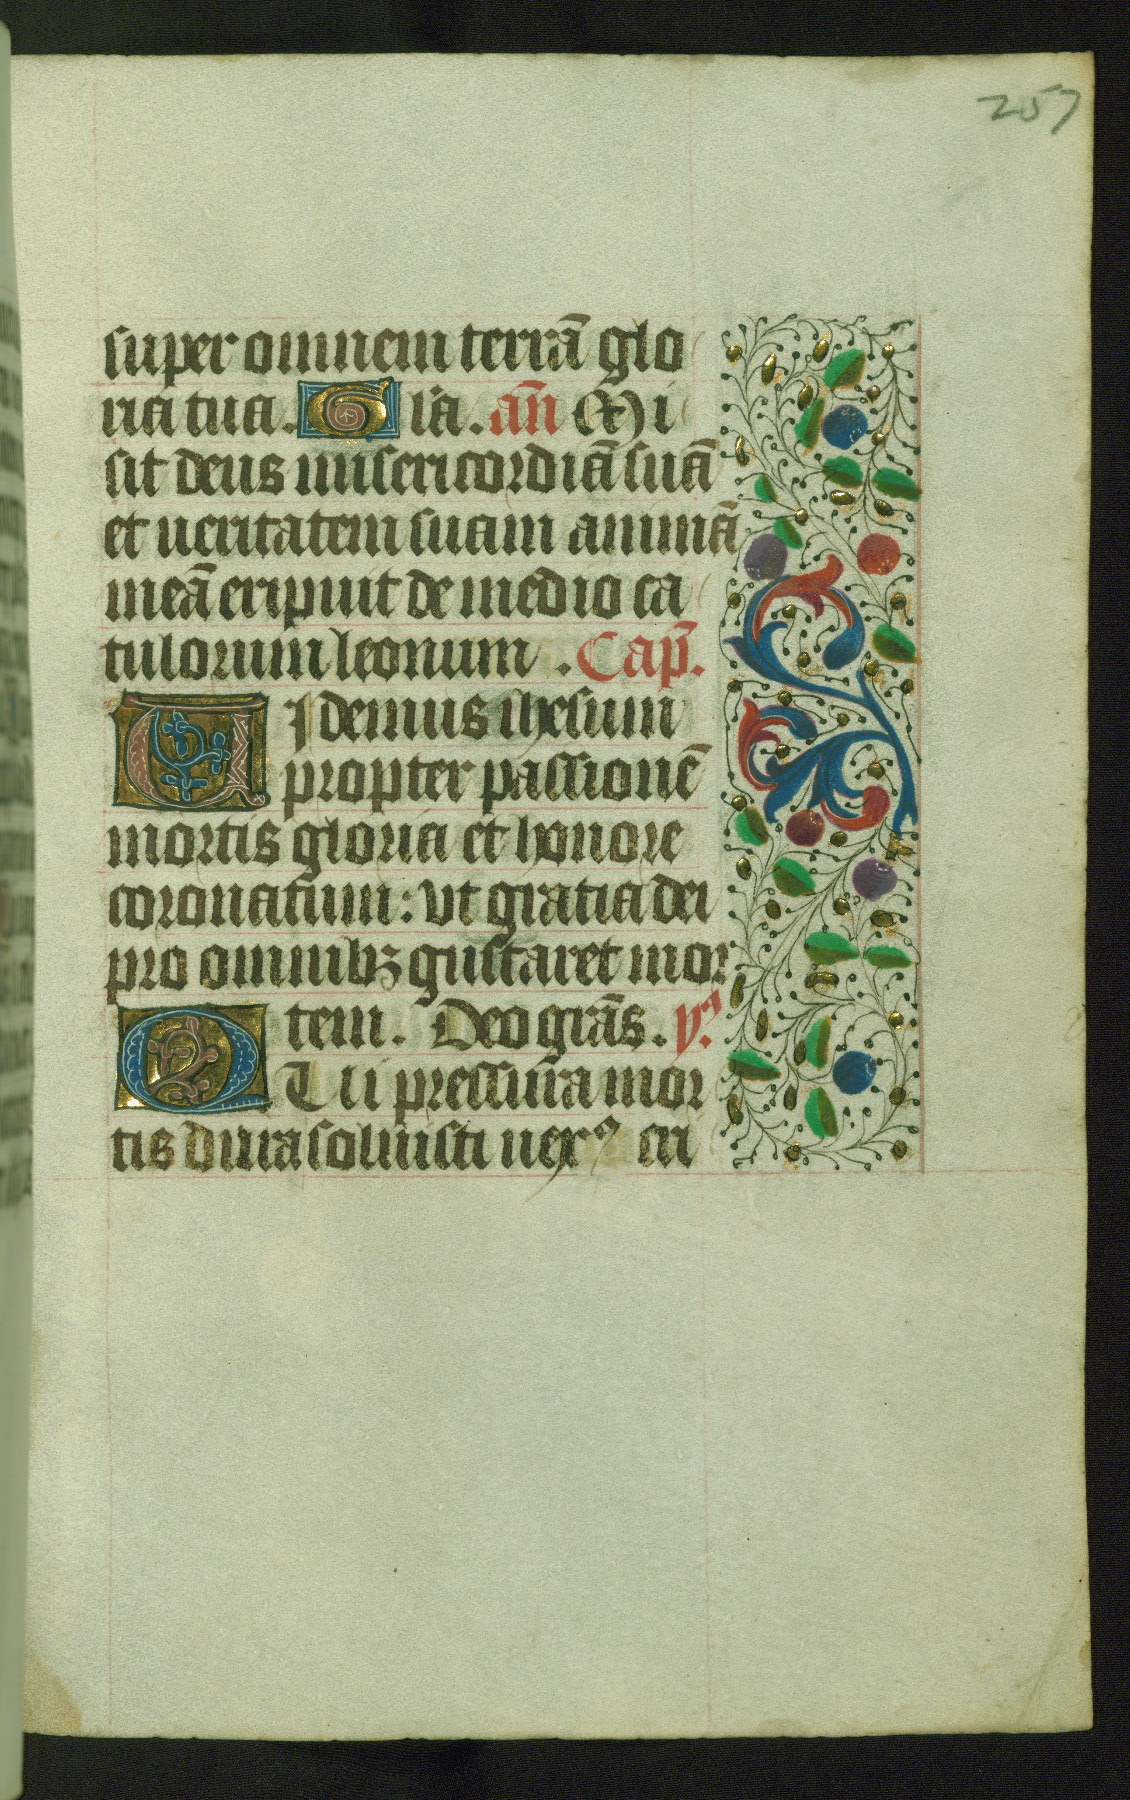 257
super omnem terrā glo
ria tua. Gl'a. an̄ Mi
sit deus misericordiā suā
et ueritatem suam animā
meā eripuit de medio ca
tulorum leonum. Cap̄.
Uidemus ihesum
propter passionē
mortis gloria et honore
coronatum: ut gratia dei
pro omnibꝫ gustaret mor
tem. Deo grās.
Qui pressura mor
tis dura soluisti